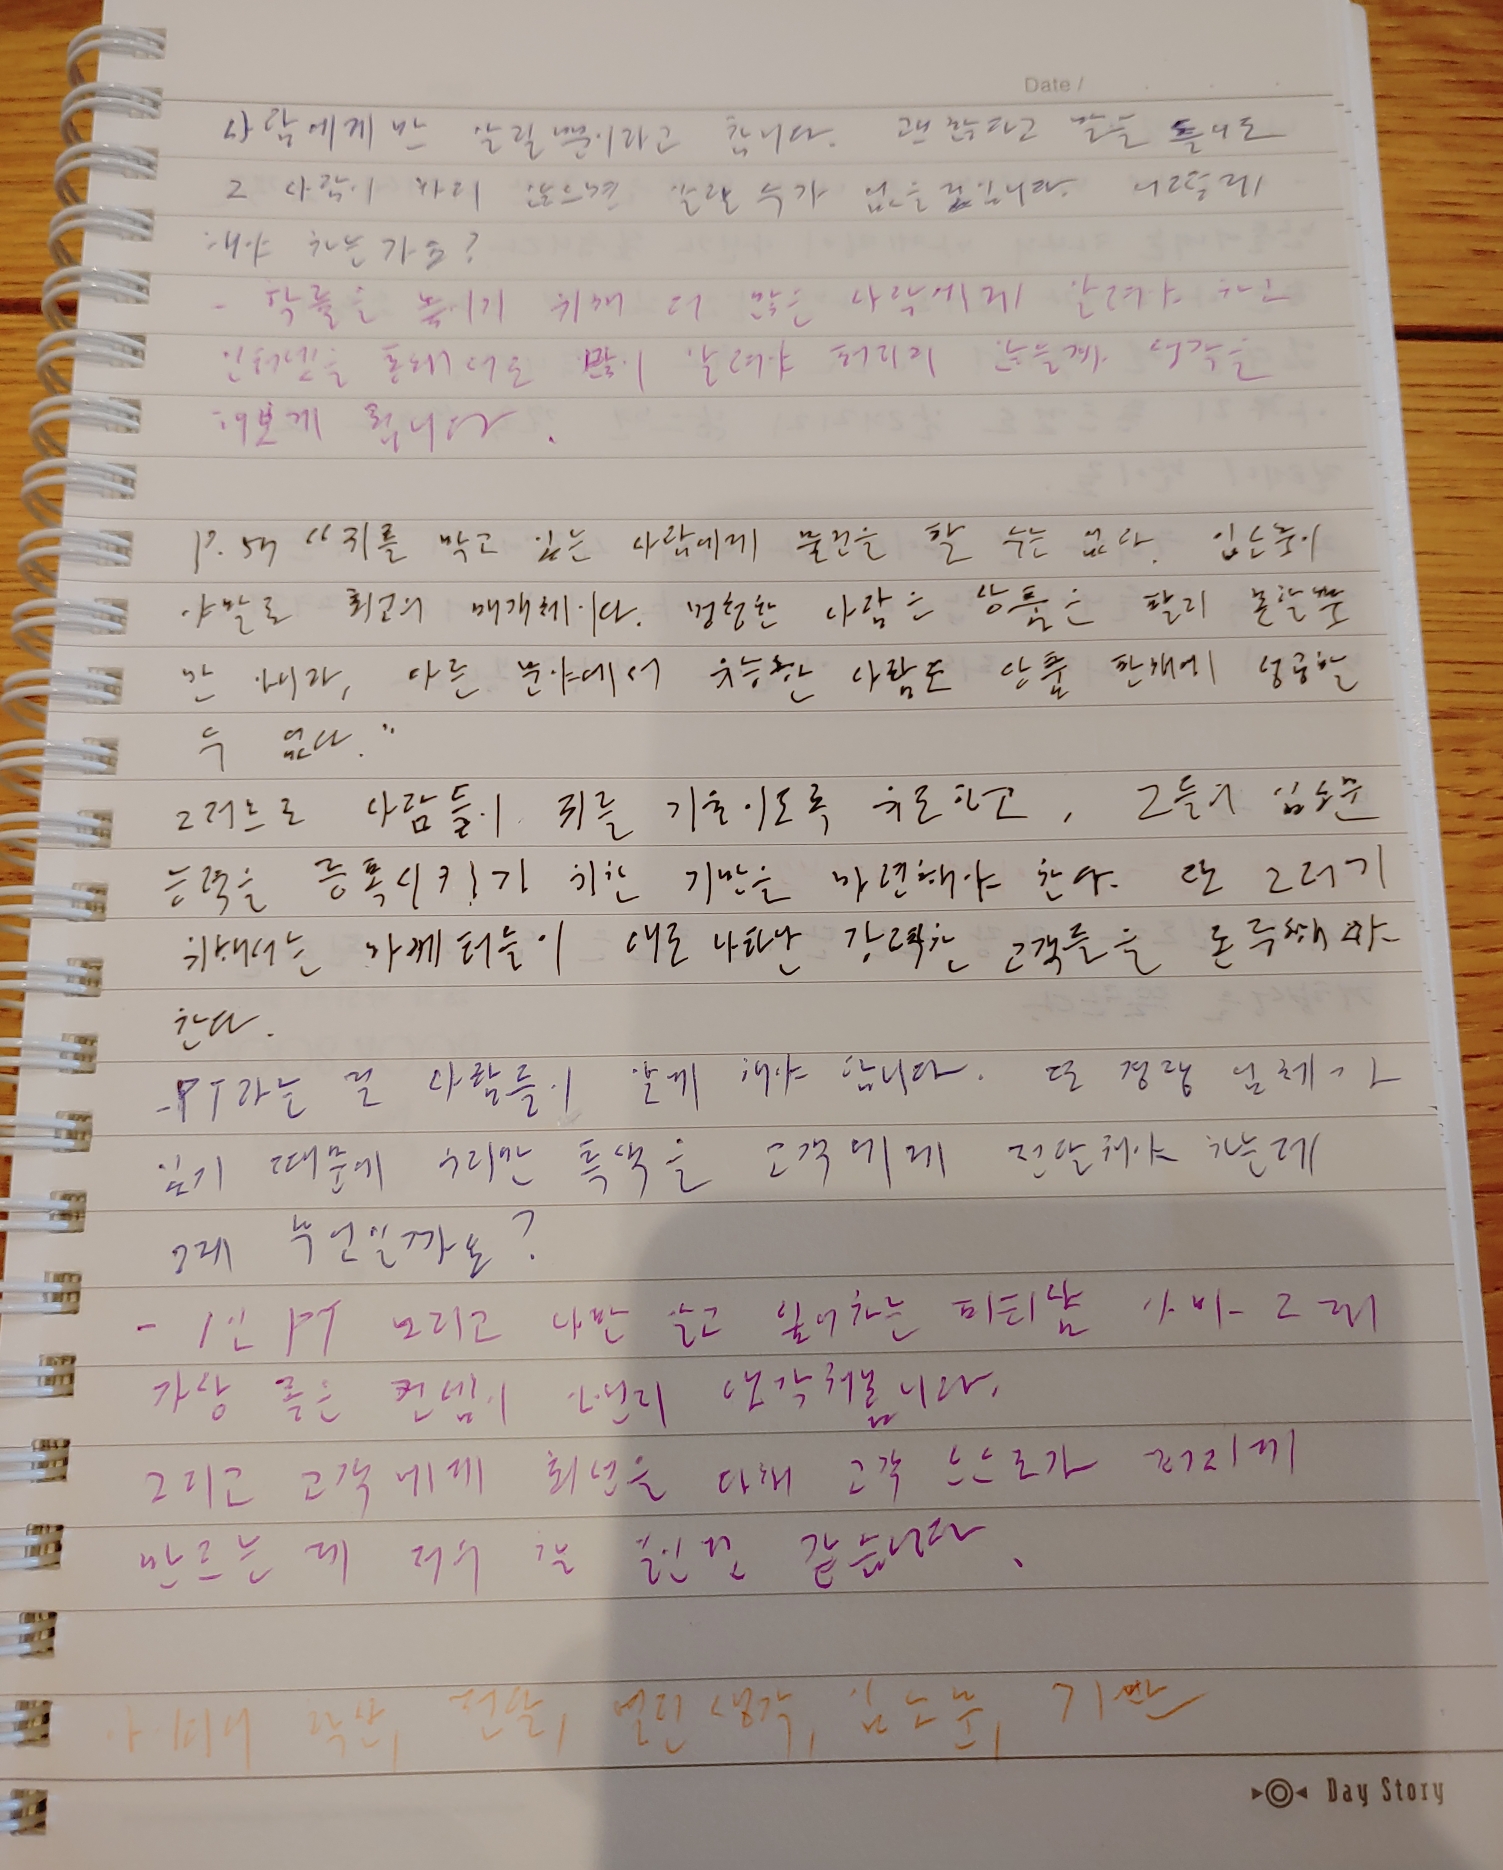 Date /
사람에게만 알릴뿐이라고 합니다. 괜찮다고 말을 들어도
그 사람이 사지 않으면 알릴 수가 없을겁입니다. 어떻게
해야 하는가요?
- 확률을 높이기 위해 더 많은 사람에게 알려야 하고
인터넷을 통해서도 많이 알려야 퍼지지 않을까 생각을
해보게 됩니다.
P. 54 "귀를 막고 있는 사람에게 물건을 팔 수는 없다. 입소문이
야말로 최고의 매개체이다. 멍청한 사람은 상품은 팔지 못할뿐
만 아니라, 다른 분야에서 유능한 사람도 상품 판매에 성공할
수 없다."
그러므로 사람들이 귀를 기울이도록 유도하고, 그들의 입소문
능력을 증폭시키기 위한 기반을 마련해야 한다. 또 그러기
위해서는 마케터들이 새로 나타난 강력한 고객들을 존중해야
한다.
-PT라는 걸 사람들이 알게 해야 합니다. 또 경쟁 업체가
있기 때문에 우리만 특색을 고객에게 전달해야 하는데
그게 무엇일까요?
- 1인 PT 그리고 나만 알고 싶어하는 피티샵 아마 그게
가장 좋은 컨셉이 아닌지 생각해봅니다.
그리고 고객에게 최선을 다해 고객 스스로가 퍼지게
만드는 게 저의 할 일인것 같습니다.
아이디어 확산, 전달, 열린생각, 입소문, 기반
Day Story